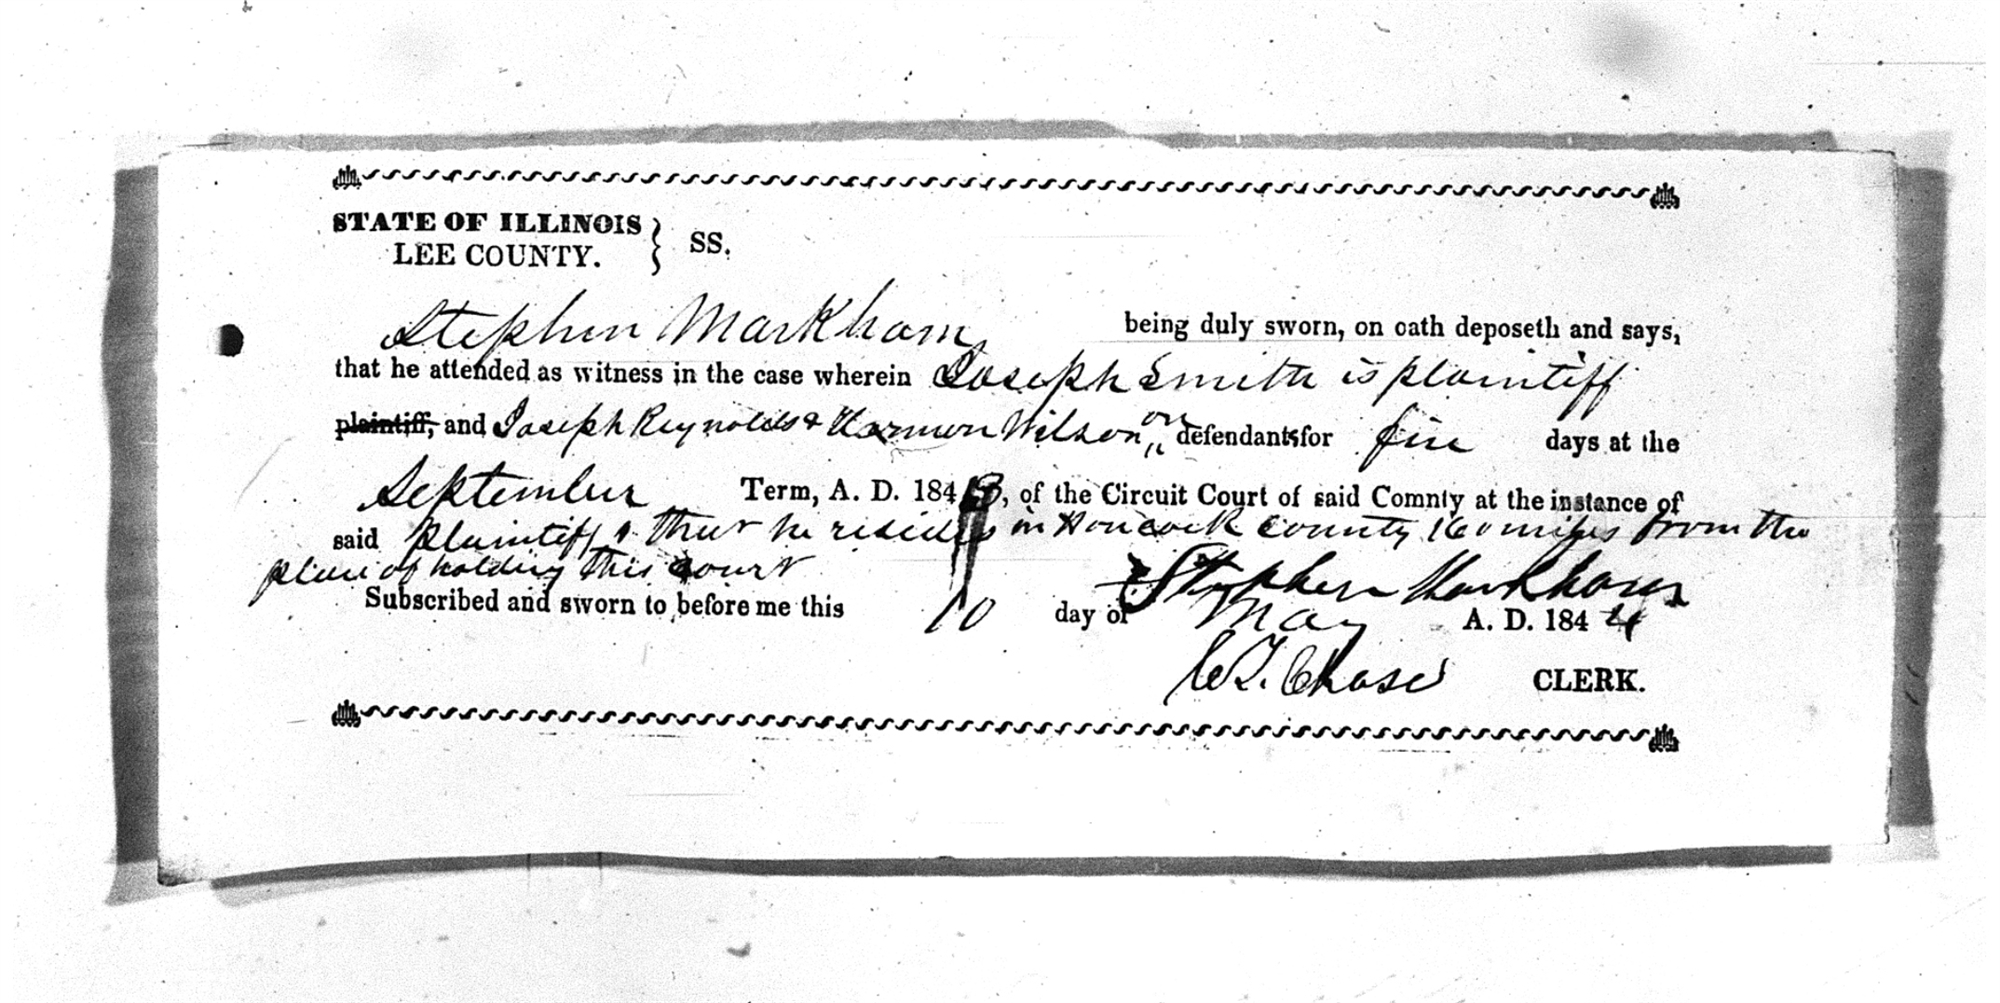 STATE OF ILLINOIS } SS.
LEE COUNTY.
Stephen Markham being duly sworn, on oath deposeth and says,
that he attended as witness in the case wherein Joseph Smith is plaintiff
plaintiff, and Joseph Reynolds & Harmon Wilson are defendants for five days at the
September Term, A. D. 1843, of the Circuit Court of said Comnty at the instance of
said plaintiff & that he resides in Hancock County 160 miles from the
place of holding this court
Stephen Markham
Subscribed and sworn to before me this 10 day of May A. D. 1844
Chase CLERK.